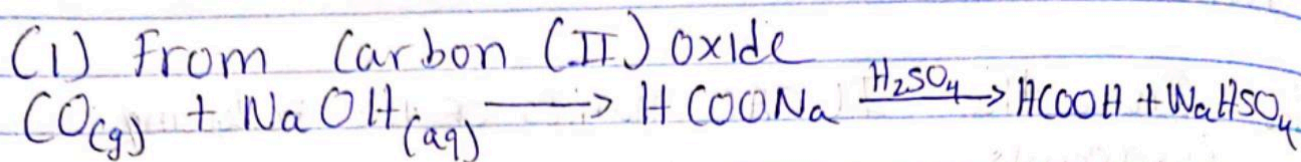 (1) From Carbon (II) oxide
CO(g) + NaOH(aq) ⟶ HCOONa —H₂SO₄→ HCOOH + NaHSO₄